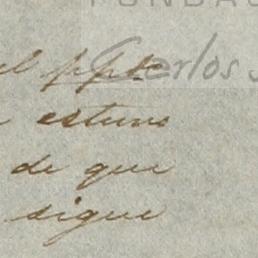 FUNDAC
Carlos
el ppto
estuvo
de que
sigue